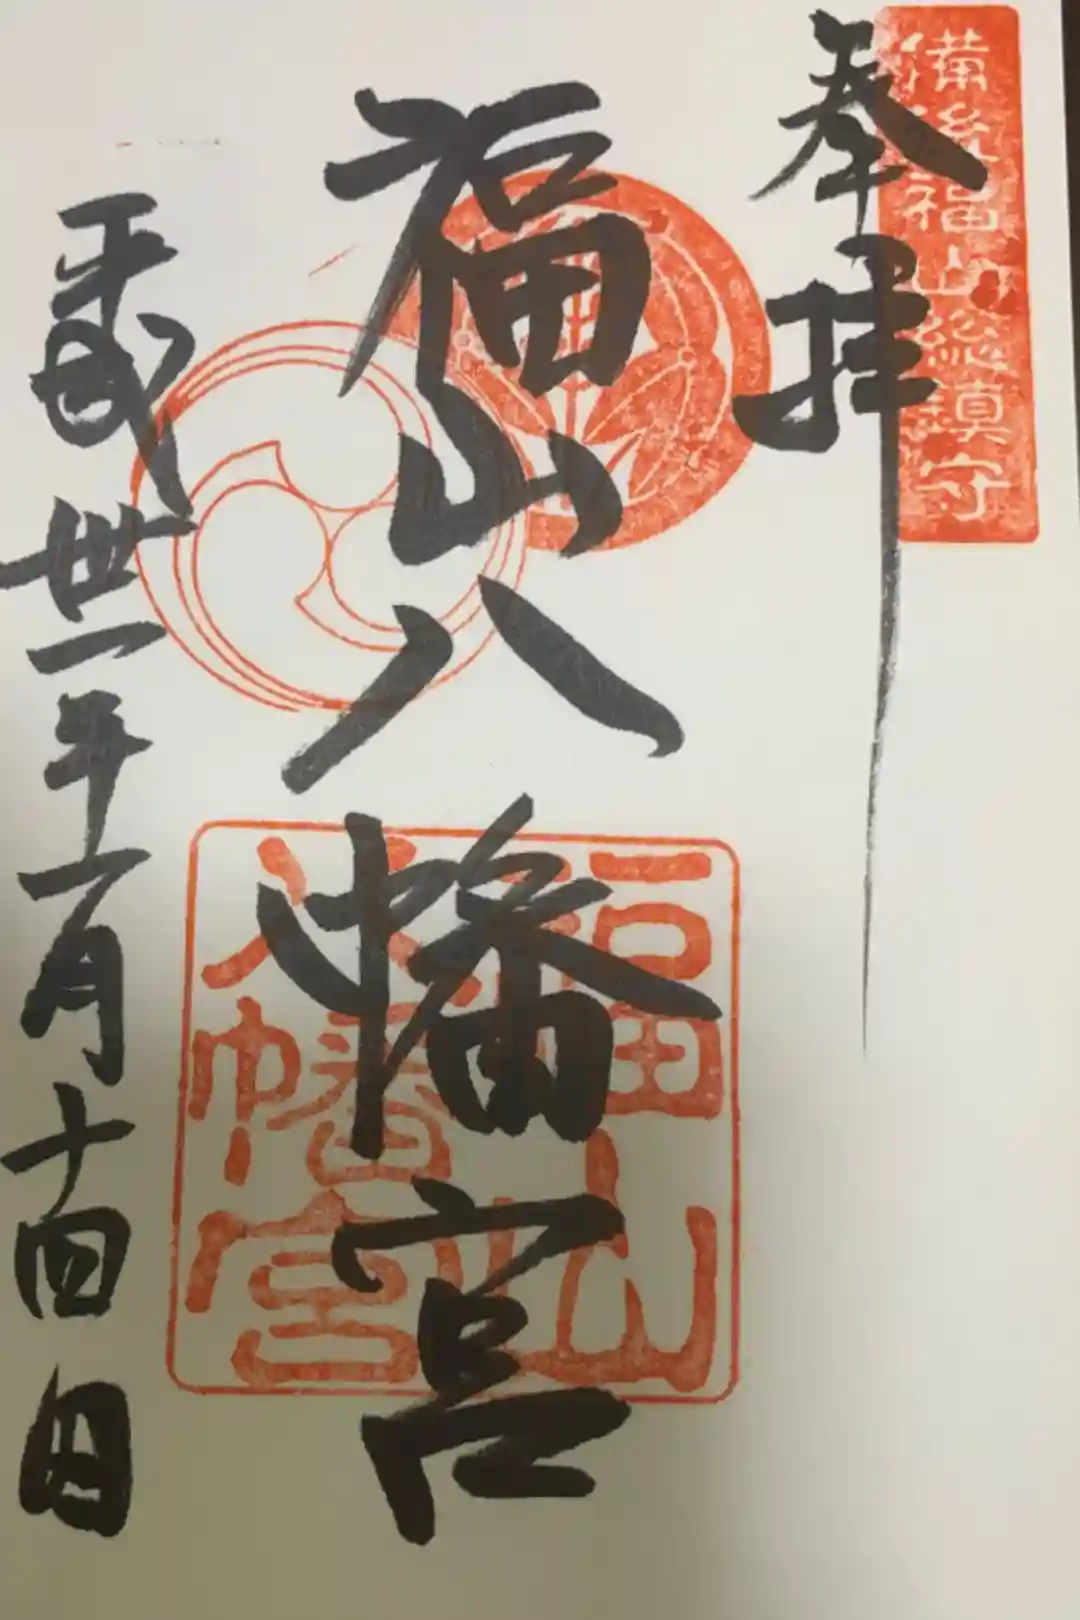 備後福山総鎮守
奉拝
福山八幡宮
福山
八幡宮
平成卅一年一月十四日